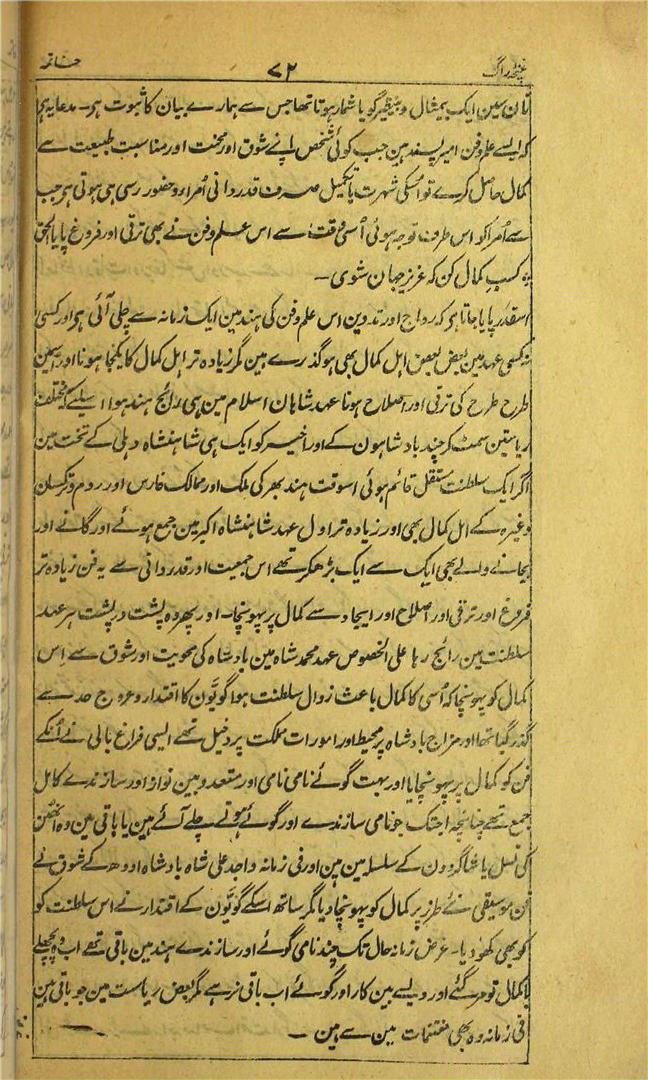 غنچۂ راگ ۷۲ خاتمہ
تان سین ایک بیمثال و بینظیر گویا شمار ہوتا تھا جس سے ہمارے بیان کا ثبوت ہی۔ مدعا یہ ہی
کہ ایسے علم و فن امیر پسند ہین جب کوئی شخص اپنے شوق اور محنت اور مناسبت طبیعت سے
کمال حاصل کرے تو اسکی شہرت یا تکمیل صرف قدردانی اُمراء و حضور رسی ہی ہوتی ہی جب
سے اُمرا کو اس طرف توجہ ہوئی اُسی وقت سے اس علم و فن نے بھی ترقی اور فروغ پایا الحق
کسب کمال کن کہ عزیز جہان شوی۔
اسقدر پایا جاتا ہی کہ رواج اور تدوین اس علم و فن کی ہند مین ایک زمانہ سے چلی آئی ہی اور کسی
نہ کسی عہد مین بعض بعض اہل کمال بھی ہو گذرے ہین مگر زیادہ تر اہل کمال کا یکجا ہونا اور اسمین
طرح طرح کی ترقی اور اصلاح ہونا عہد شاہان اسلام مین ہی رائج ہند ہوا اسلیے کہ مختلف
ریاستین سمٹ کر چند بادشاہون کے اور اخیر کو ایک ہی شاہنشاہ دہلی کے تخت مین
آکر ایک سلطنت مستقل قائم ہوئی اسوقت ہند بھر کی ملک اور ممالک فارس اور روم و ترکستان
وغیرہ کے اہل کمال بھی اور زیادہ تر اول عہد شاہنشاہ اکبر مین جمع ہوئے اور گانے اور
بجانے والے بھی ایک سے ایک بڑھکر تھے اس جمعیت اور قدردانی سے یہ فن زیادہ تر
فروغ اور ترقی اور اصلاح اور ایجاد سے کمال پر پہونچا۔ اور پھر وہ پشت در پشت ہر عہد
سلطنت مین رائج رہا علی الخصوص عہد محمد شاہ مین بادشاہ کی محویت اور شوق سے اس
کمال کو پہونچا کہ اُسی کا کمال باعث زوال سلطنت ہوا گویّون کا اقتدار و عروج حد سے
گذر گیا تھا اور مزاج بادشاہ پر محیط اور امورات مملکت پر دخیل تھے ایسی فراغ بالی نے اُنکے
فن کو کمال پر پہونچایا اور بہت گوئے نامی نامی اور متعدد بین نواز اور سازندے کامل
جمع تھے چنانچہ اجتک جو نامی سازندے اور گوئے ہوتے چلے آئے ہین یا باقی ہین وہ اُنھین
کی نسل یا شاگردون کے سلسلہ مین ہین اور فی زمانہ واجد علی شاہ بادشاہ اودھ کے شوق نے
فن موسیقی نے طرز پر کمال کو پہونچا دیا مگر ساتھ اسکے گویّون کے اقتدار نے اس سلطنت کو
کو بھی کھو دیا۔ غرض زمانہ حال تک چند نامی گوئے اور سازندے ہند مین باقی تھے اب وہ پچھلے
باکمال تو مر گئے اور ویسے بین کار اور گوئے اب باقی نرہے مگر بعض ریاست مین جو باقی ہین
فی زمانہ وہ بھی مغتنمات مین سے ہین۔